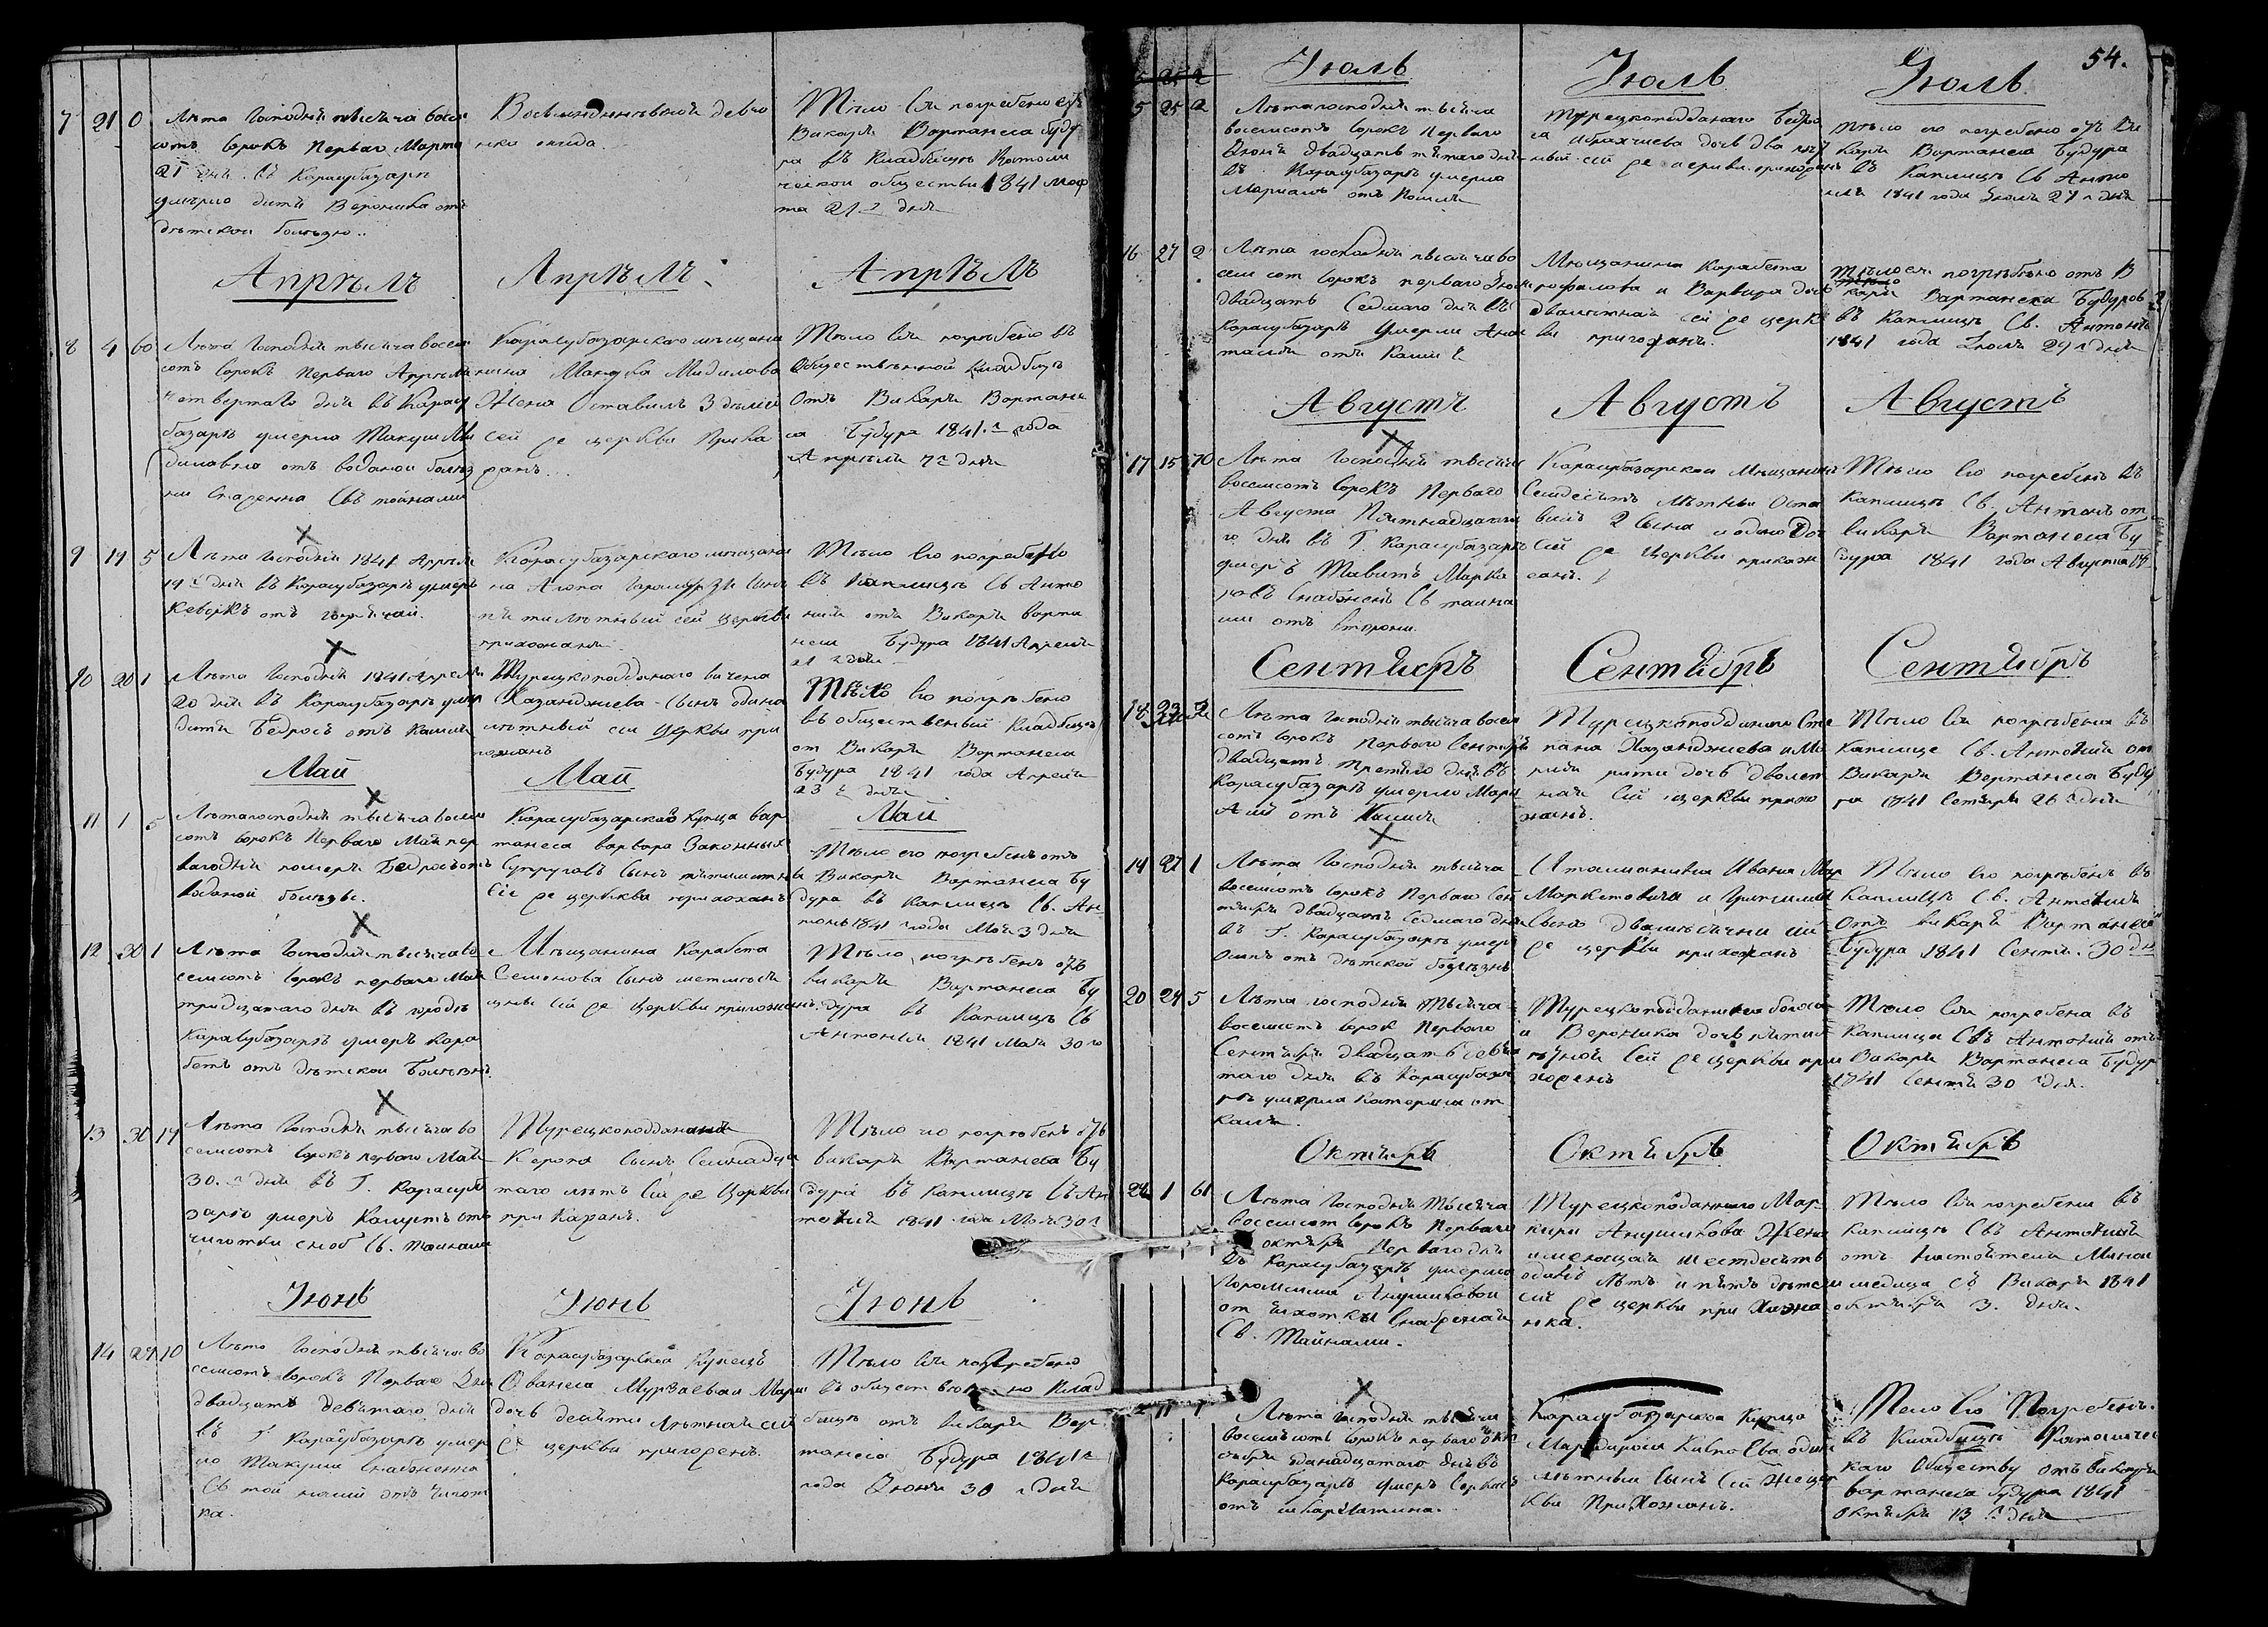 7 21 0
Лѣта Господня тысяча восем
сотъ сорокъ перваго Марта
21 дня въ Карасубазарѣ
умерло дитя Вероника отъ
дѣтской болѣзни..
Восьмидневной девоч
ка
Тѣло ея погребено отъ
Викарія Вартанеса Буду
ра въ Кладбищѣ Католи
ческой общества 1841 Мар
та 21 дня
Апрѣль
Апрѣль
Апрѣль
8 4 60
Лѣта Господня тысяча восем
сотъ сорокъ перваго Апрѣля
четвертаго дня въ Карасу
базарѣ умерла Такуш
отъ водяной болѣз
ни Св тойнами
Карасубазарскаго мѣщани
нина Манука
Жена Оставилъ 3 дѣтей
сей ре церкви Приха
ранъ...
Тѣло ея погребено въ
Общественной кладбищѣ
Отъ Викарія Вартане
са Будура 1841 года
Апрѣля 7 дня
9 19 5
Лѣта Господня 1841 Апрѣля
19 дня въ Карасубазарѣ умеръ
Кеворкъ отъ горячай.
Карасубазарскаго мѣщани
на сынъ
пятилѣтный сей церкви
прихожани
Тѣло его погребено
въ каплицѣ Св Анто
ній отъ Викарія Варта
неса Будура 1841 Апреля
21 дня
10 20 1
Лѣта Господня 1841 Апреля
20 дня въ Карасубазарѣ умер
дитя Бедросъ отъ Кашля
Турецкоподданаго
Казанджиева сынъ одина
лѣтный сей церкви при
хожанъ
Тѣло его погребено
въ общественный Кладбищѣ
от Викарія Вартанеса
Будура 1841 года Апреля
23 дня
Май
Май
Май
11 1 5
Лѣта господня тысяча восем
сотъ сорокъ перваго Мая пер
вагодня померъ Бедросъ отъ
водяной болѣзнь.
Карасубазарской купца Вар
танеса Варвара Законныхъ
Супруговъ сынъ пятилѣтны
Сіе ре церкова прихожанъ
Тѣло его погребенъ отъ
Викарія Вартанеса Бу
дура въ каплицѣ Св. Ан
тонъ 1841 года Мая 3 дня
12 30 1
Лѣта Господня тысяча во
семсотъ сорокъ перваго Мая
тридцатаго дня въ городѣ
Карасубазарѣ умеръ Кара
бетъ отъ дѣтской Болѣзнь.
Мѣщанина Карабета
Семенова сынъ шестимѣся
цны сей ре церкви прихожанъ
Тѣло погребенъ отъ
викарія Вартанеса Бу
дура въ Каплицѣ Св
Антонія 1841 Мая 30 го
13 30 17
Лѣта Господня тысяча во
семсотъ сорокъ перваго Мая
30. дня въ Г. Карасуба
зарѣ умеръ Капустъ отъ
чихотки Св. тайнами
Турецкоподданаго
сынъ Семнадца
таго лѣтъ сій ре Церкви
прихаранъ.
Тѣло его погребенъ отъ
викарія Вартанеса Бу
дура въ каплицѣ Св Ан
тоній 1841 года Мая 30
Іюнь
Іюнь
Іюнь
14 29 10
Лѣта Господня тысяча во
семсотъ сорокъ Перваго Іюня
двадцать девятаго дня
въ г Карасубазарѣ умер
ла Такуши снабженна
Св той намий отъ Чихот
ка.
Карасубазарской Купецъ
Ованеса Мурзаевая Мари
дочь десяти лѣтная сей
ре церкви прихоренъ.
Тѣло ея погребено
въ обществено но Клад
бищѣ отъ викарія Вар
танеса Будура 1841
года Іюня 30 дня
54.
Іюль
Іюль
Іюль
15 25 2
Лѣта господня тысяча
восемсотъ сорокъ перваго
Іюня двадцать пятаго дня
въ Карасубазарѣ умерла
Мариамъ отъ Кошля
Турецкоподданаго Бедро
са дочь два лѣт
ный сей ре церкви прихоренъ
Тѣло ея погребено отъ Ви
карія Вартанеса Будура
въ Каплицѣ Св Анто
нія 1841 года Іюля 27 дня
16 27 2
Лѣта господня тысяча во
сем сот сорокъ перваго Іюля
двадцать Седмаго дня въ
Карасубазарѣ Умерла Ана
талія отъ Кашля
Мѣщанина Карабета
и Варвара дочь
двалѣтная сей ре церк
ви прихожанъ.
Тѣло ея погрѣбено отъ Ви
карія Вартанеса Будура
въ Каплицѣ Св. Антонія
1841 года Іюля 29 дня
Августъ
Августъ
Августъ
17 15 70
Лѣта Господня тысяча
восемсотъ сорокъ Перваго
Августа Пятнадцата
го дня въ Г. Карасубазарѣ
умеръ Тавитъ Марка
ровъ Снабженъ Св таина
ми отъ
Карасубазарской Мѣщанинъ
Семдесятъ лѣтный Оста
вилъ 2 сына и одно Доч
сій ре Церкви прихож
санъ.
Тѣло его погребенъ въ
каплицѣ Св. Антонъ от
викарія Вартанеса Бу
дура 1841 года Августа 17
Сентябрь
Сентябрь
Сентябрь
18 23 2
Лѣта Господня тысяча восем
сотъ сорокъ Перваго Сентября
двадцать третьяго дня въ
Карасубазарѣ умерло Мари
Амй отъ Кашля
Турецкоподданаго Сте
пана Казанджиева и Ма
рии дочь двалет
ная Сей церкви прихо
жанъ.
Тѣло ея погрѣбена въ
Каплице Св. Антоній от
Викарія Вартанеса Буду
ра 1841 Сентября 26 дня
19 27 1
Лѣта Господня тысяча
восемсотъ сорокъ Перваго Сен
тября двадцать седмаго дня
въ Г. Карасубазарѣ умер
отъ дѣтской болѣзнь
Италианина Ивана Мар
Маркетовича и
сынъ двамѣсячны сій
ре церкви прихожанъ
Тѣло его погребенъ въ
Каплицѣ Св. Антоній
Отъ викарія Вартанеса
Будура 1841 Сентя. 30 дня
20 29 5
Лѣта господня тысяча
восемсотъ сорок перваго
Сентября двадцать девя
таго дня въ Карасубаза
рѣ умерла Катерина от
кашля.
Турецкоподданаго
и Вероника дочь пятил
ѣтной Сей ре церкви при
хоренъ
Тѣло ея погребена въ
Каплицѣ Свъ Антоній отъ
Викарія Вартанеса Будур
1841 Сентя 30 дня.
Октябрь
Октябрь
Октябрь
21 1 61
Лѣта Господня тысяча
восемсот сорокъ перваго
октября перваго дня
въ Карасубазарѣ умерла
от чихотки снабженай
Св. Тайнами.
Турецкоподданнаго Мар
кири Анушикова Жена
имеющая шестдесятъ
одинъ лѣтъ и пять дѣтей
сій ре церкви при Хожа
нка.
Тѣло ея погребена въ
каплицѣ Свъ Антоній
отъ настоятеля Минаи
медица съ Викарія 1841
октября 3. дня.
11 1
Лѣта Господня тысяча
восемсотъ сорокъ перваго Окт
ября одинадцатаго дня въ
Карасубазарѣ умеръ Саркисъ
отъ шкарлатина.
Карасубазарской Купца
одно
лѣтный сынъ сей Же цер
кви При Хожанъ.
Тело его Погребенъ.
въ Кладбищѣ Католичес
каго Обществу отъ викарія
вартанеса будура 1841
октября 13 дня